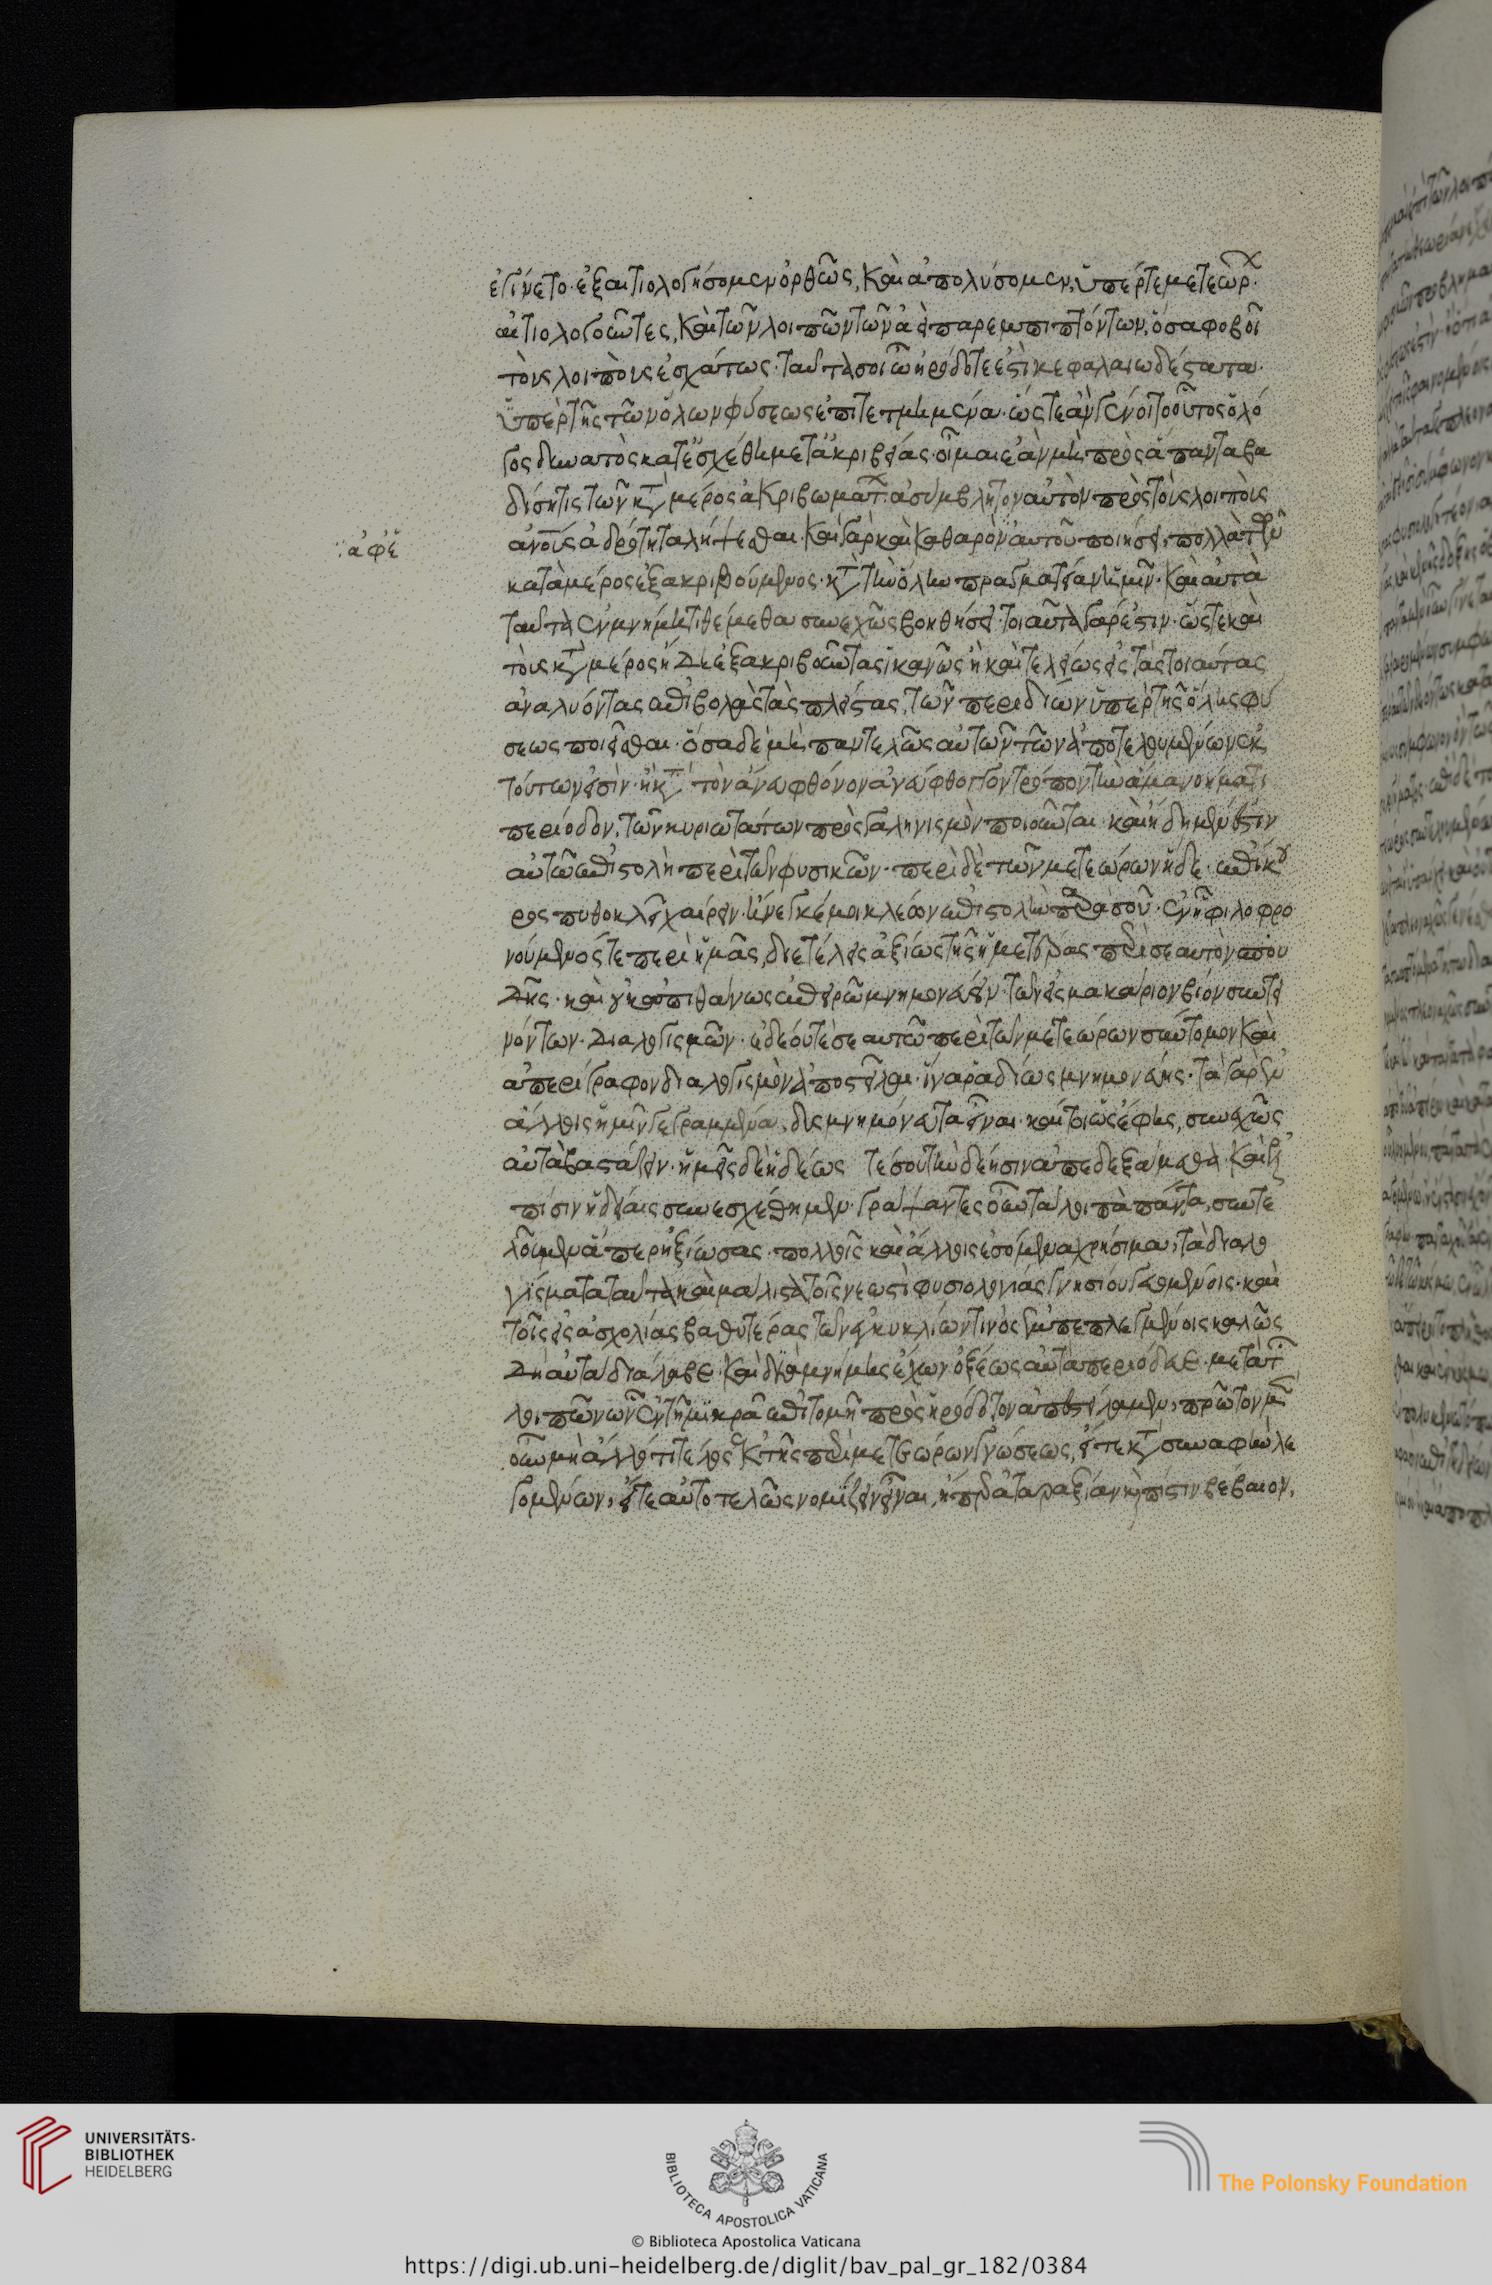 ἐγίνετο· ἐξαιτιολογήσομεν ὀρθῶς, καὶ ἀπολύσομεν, ὑπέρ τε μετεώρ
αἰτιολογοῦντες, καὶ τῶν λοιπῶν τῶν ἀεὶ παρεμπιπτόντων, ὅσα φοβεῖ
τοὺς λοιποὺς ἐσχάτως· ταῦτά σοι ὦ ἡρόδοτε ἐστὶ κεφαλαιωδέστατα
ὑπὲρ τῆς τῶν ὅλων φύσεως ἐπιτετμημένα· ὥστε ἂν γένοιτο οὗτος ὁ λό
γος δυνατὸς κατεσχέθη μετ' ἀκριβείας· οἶμαι ἐὰν μὴ πρὸς ἅπαντα βα
δίση τις τῶν κατὰ μέρος ἀκριβωμάτ ἀσύμβλητον αὐτὸν πρὸς τοὺς λοιποὺς
ἀνους ἁδρότητα λήψεσθαι· καὶ γὰρ καὶ καθαρὸν ἀφ' αὑτοῦ ποιήσει, πολλὰ τῶν
κατὰ μέρος ἐξακριβούμενος· κατὰ τὴν ὅλην πραγματείαν ἡμῖν· καὶ αὐτὰ
ταῦτα ἐν μνήμη τιθέμεθα συνεχῶς βοηθήσει· τοιαῦτα γάρ ἐστιν· ὥστε καὶ
τοὺς κατὰ μέρος ἤδη ἐξακριβοῦντας ἱκανῶς ἢ καὶ τελείως εἰς τὰς τοιαύτας
ἀναλύοντας ἐπιβολὰς τὰς πλείστας, τῶν περιοδιῶν ὑπὲρ τῆς ὅλης φύ
σεως ποιεῖσθαι· ὅσα δὲ μὴ παντελῶς αὐτῶν τῶν ἀποτελουμένων ἐκ
τούτων εἰσίν· ἢ κατὰ τὸν ἄνευ φθόνον ἄνευ φθόγγων τρόπον τὴν ἅμα νοήματι
περίοδον, τῶν κυριωτάτων πρὸς γαληνισμὸν ποιοῦνται· καὶ ἥδε μέν ἐστιν
αὐτῶ ἐπιστολὴ περὶ τῶν φυσικῶν· περὶ δὲ τῶν μετεώρων ἥδε· ἐπίκου
ρος πυθοκλεῖ χαίρειν· ἤνεγκέ μοι κλέων ἐπιστολὴν παρὰ σοῦ· ἐν ἧ φιλοφρο
νούμενός τε περὶ ἡμᾶς, διετέλεις ἀξίως τῆς ἡμετέρας περὶ σεαυτὸν σπου
δῆς· καὶ οὐκ ἀπιθάνως ἐπειρῶ μνημονεύειν· τῶν εἰς μακάριον βίον συντει
νόντων· διαλογισμῶν· ἐδέου τέ σεαυτῶ περὶ τῶν μετεώρων σύντομον καὶ
ἀπερίγραφον διαλογισμὸν ἀποστεῖλαι· ἵνα ῥαδίως μνημονεύης· τὰ γὰρ ἐν
ἄλλοις ἡμῖν γεγραμμένα, δυσμνημόνευτα εἶναι· καίτοι ὡς ἔφης, συνεχῶς
αὐτὰ βαστάζειν· ἡμεῖς δὲ ἡδέως τέ σου τὴν δέησιν ἀπεδεξάμεθα· καὶ ἐλ
πίσιν ἡδείαις συνεσχέθημεν· γράψαντες οὖν τὰ λοιπὰ πάντα, συντε
λοῦμεν ἅπερ ἠξίωσας· πολλοῖς καὶ ἄλλοις ἐσόμενα χρήσιμα, τὰ διαλο
γίσματα ταῦτα καὶ μάλιστα τοῖς νεωστὶ φυσιολογίας γνησίου γευομένοις· καὶ
τοῖς εἰς ἀσχολίας βαθυτέρας τῶν ἐγκυκλίων τινὸς ἐμπεπλεγμένοις καλῶς
δὴ αὐτὰ διάλαβε· καὶ διὰ μνήμης ἔχων ὀξέως αὐτὰ περιόδευε· μετὰ τῶν
λοιπῶν ὧν ἐν τῆ μικρᾶ ἐπιτομῆ πρὸς ἡρόδοτον ἀπεστείλαμεν, πρῶτον μὲν
οὖν μὴ ἄλλο τι τέλος ἐκ τῆς περὶ μετεώρων γνώσεως, εἴτε κατὰ συναφὴν λε
γομένων, εἴτε αὐτοτελῶς νομίζειν εἶναι, ἤπερ ἀταραξίαν καὶ πίστιν βέβαιον,
UNIVERSITÄTS-
BIBLIOTHEK
HEIDELBERG
BIBLIOTECA APOSTOLICA VATICANA
The Polonsky Foundation
© Biblioteca Apostolica Vaticana
https://digi.ub.uni-heidelberg.de/diglit/bav_pal_gr_182/0384